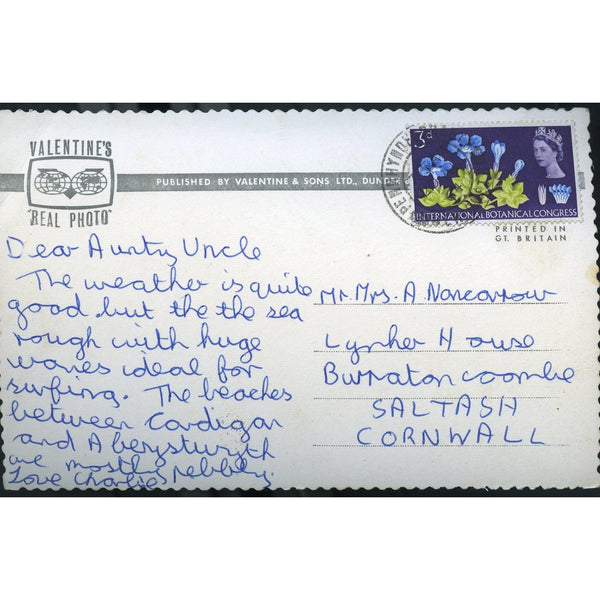 VALENTINE'S
"REAL PHOTO"
PUBLISHED BY VALENTINE & SONS LTD.,
3d
INTERNATIONAL BOTANICAL CONGRESS
PRINTED IN
GT. BRITAIN
Dear Aunty, Uncle
The weather is quite
good but the the sea
rough with huge
waves ideal for
surfing. The beaches
between Cardigan
and Aberystwyth
are mostly pebbly.
Love Charlie
Mr. Mrs. A Nancarrow
Lynher House
Burraton coombe
SALTASH
CORNWALL